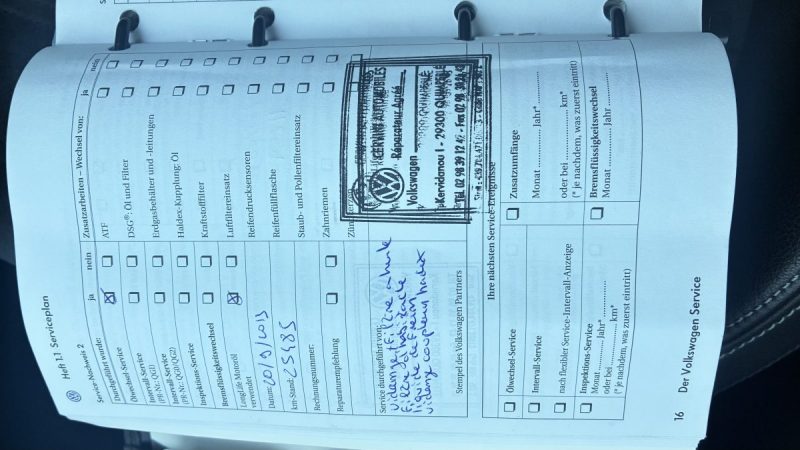 Heft 1.1 Serviceplan
Service-Nachweis 2
Service wurde:
ja
nein
Durchgeführt
Ölwechsel-Service
Intervall-Service
(PR-Nr.: QG1)
Intervall-Service
(PR-Nr.: QG0/QG2)
Inspektions-Service
Bremsflüssigkeitswechsel
Longlife Motoröl
verwendet
Datum: 20/9/2013
km-Stand: 25485
Rechnungsnummer:
Reparaturempfehlung
Zusatzarbeiten – Wechsel von:
ja
nein
ATF
DSG®: Öl und Filter
Erdgasbehälter und -leitungen
Haldex-Kupplung: Öl
Kraftstofffilter
Luftfiltereinsatz
Reifendrucksensoren
Reifenfüllflasche
Staub- und Pollenfiltereinsatz
Zahnriemen
Service durchgeführt von:
vidange filtre a huile
liquide de frein
vidange haldex
Stempel des Volkswagen Partners
AUTOMOBILES
Réparateur Agréé
Volkswagen
Kervidanou I - 29300 QUIMPERLÉ
Tél. 02 98 39
Ihre nächsten Service-Ereignisse
Ölwechsel-Service
Intervall-Service
nach flexibler Service-Intervall-Anzeige
Inspektions-Service
Monat ........... Jahr* ...........
oder bei ........... km*
(* je nachdem, was zuerst eintritt)
Zusatzumfänge
Monat ........... Jahr* ...........
oder bei ........... km*
(* je nachdem, was zuerst eintritt)
Bremsflüssigkeitswechsel
Monat ........... Jahr ...........
16 Der Volkswagen Service